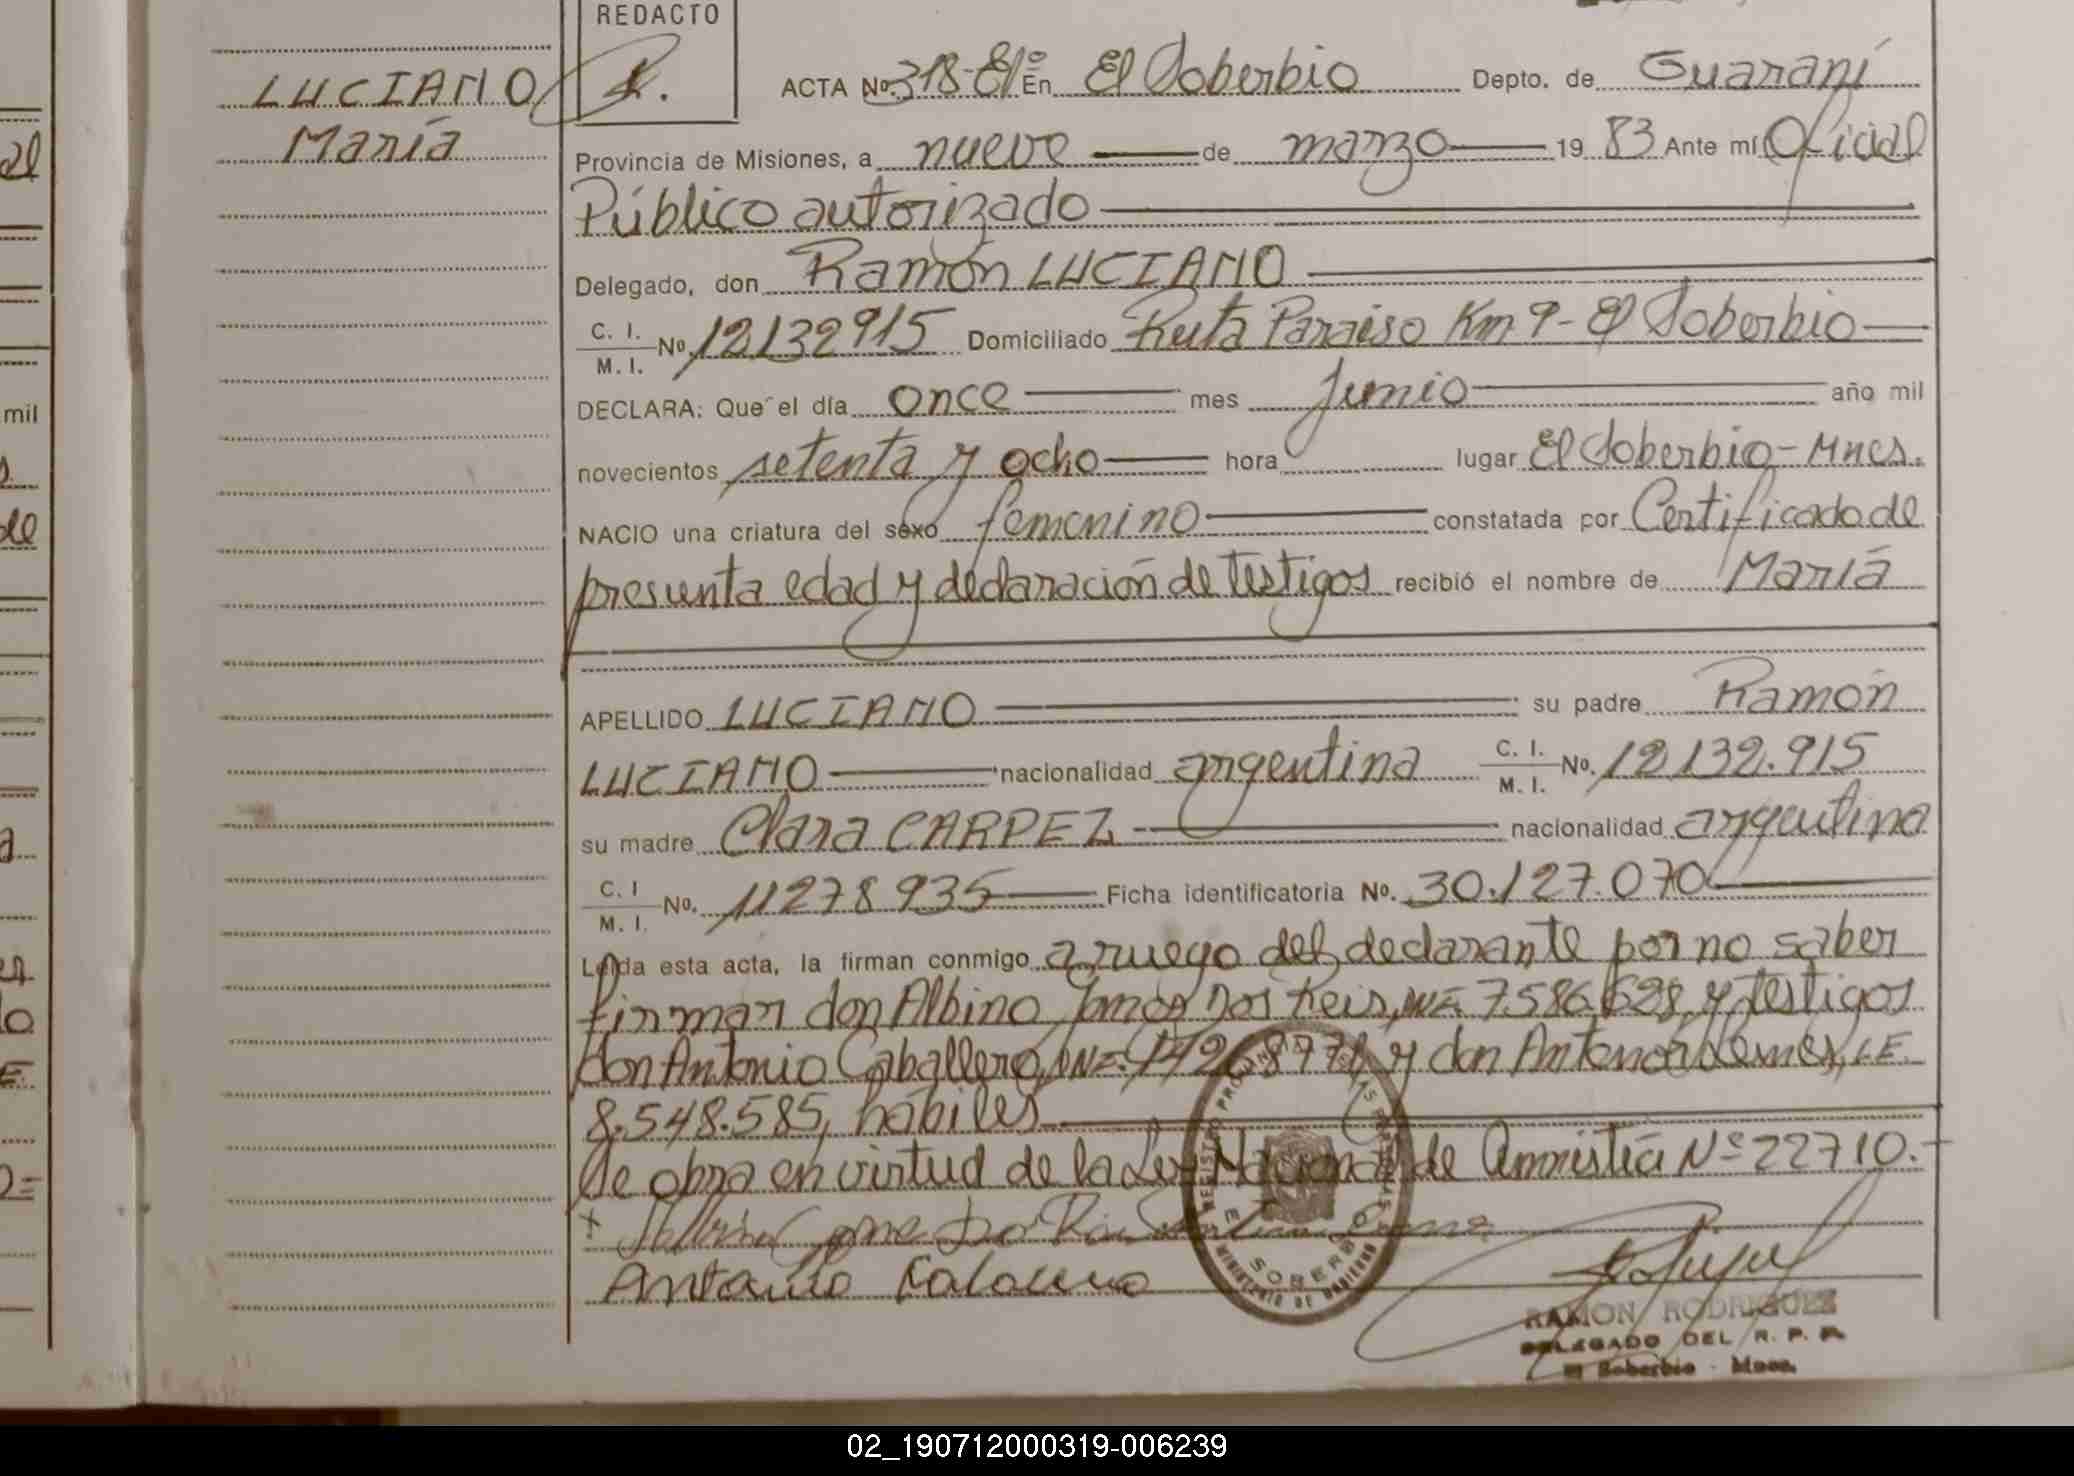 REDACTO
LUCIANO
María
ACTA Nº 318-81º En El Soberbio Depto. de Guaraní
Provincia de Misiones, a nueve de marzo 19 83 Ante mí Oficial
Público autorizado
Delegado, don Ramón LUCIANO
C. I. M. I. Nº 12132915 Domiciliado Ruta Paraiso Km 9 - El Soberbio
DECLARA: Que el día once mes junio año mil
novecientos setenta y ocho hora lugar El Soberbio - Mnes.
NACIO una criatura del sexo femenino constatada por Certificado de
presunta edad y declaración de testigos recibió el nombre de María
APELLIDO LUCIANO su padre Ramón
LUCIANO nacionalidad argentina C. I. M. I. Nº. 12132.915
su madre Clara CARPEZ nacionalidad argentina
C. I M. I. Nº. 11278935 Ficha identificatoria Nº. 30.127.070
Leída esta acta, la firman conmigo a ruego del declarante por no saber
firmar don Albino Gomes Dos Reis, 7586.628, y testigos
don Antonio Caballero, y don Antenor Lemes, L.E.
8.548.585, hábiles
Se obra en virtud de la Ley Nacional de Amnistía Nº 22710.-
Antonio
SOBERBIO
MINISTERIO DE GOBIERNO
RAMON RODRIGUEZ
DELEGADO DEL R. P. P.
El Soberbio - Mnes.
al
mil
de
02_190712000319-006239